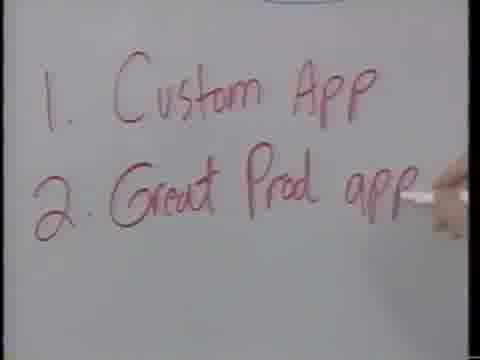 1. Custom App
2. Great Prod app